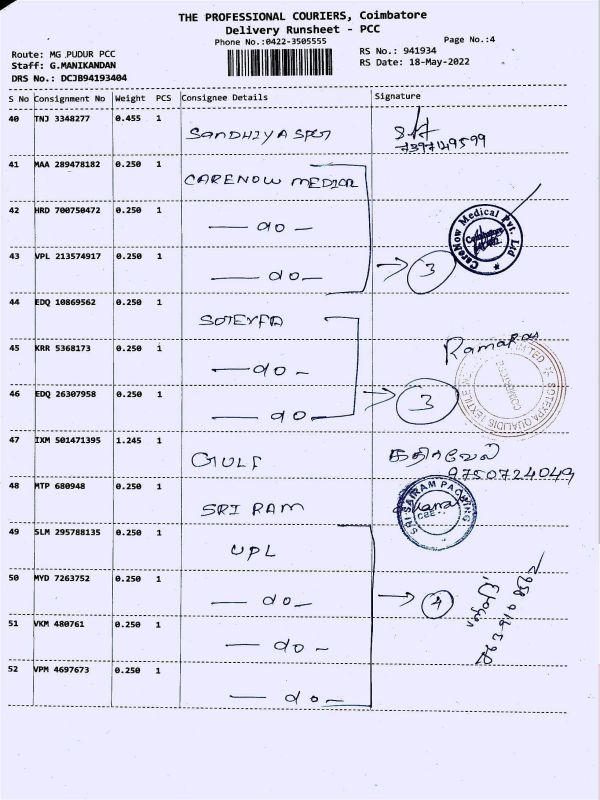 THE PROFESSIONAL COURIERS, Coimbatore
Delivery Runsheet - PCC
Phone No.:0422-3505555
Page No.:4
Route: MG PUDUR PCC
RS No.: 941934
Staff: G.MANIKANDAN
RS Date: 18-May-2022
DRS No.: DCJB94193404
S No Consignment No Weight PCS Consignee Details Signature
40 TNJ 3348277 0.455 1 SANDHIYA
41 MAA 289478182 0.250 1 CARENOW MEDICAL
42 HRD 700750472 0.250 1 — do —
43 VPL 213574917 0.250 1 — do — → 3
CareNow Medical Pvt. Ltd
Coimbatore
44 EDQ 10869562 0.250 1
45 KRR 5368173 0.250 1 — do —
46 EDQ 26307958 0.250 1 — do — → 3
47 IXM 501471395 1.245 1 GULF கதிர்வேல்
9750724049
48 MTP 680948 0.250 1 SRI RAM
SRI SAIRAM PACKING
CBE
49 SLM 295788135 0.250 1 UPL
50 MYD 7263752 0.250 1 — do — → 4
51 VKM 480761 0.250 1 — do —
52 VPM 4697673 0.250 1 — do —